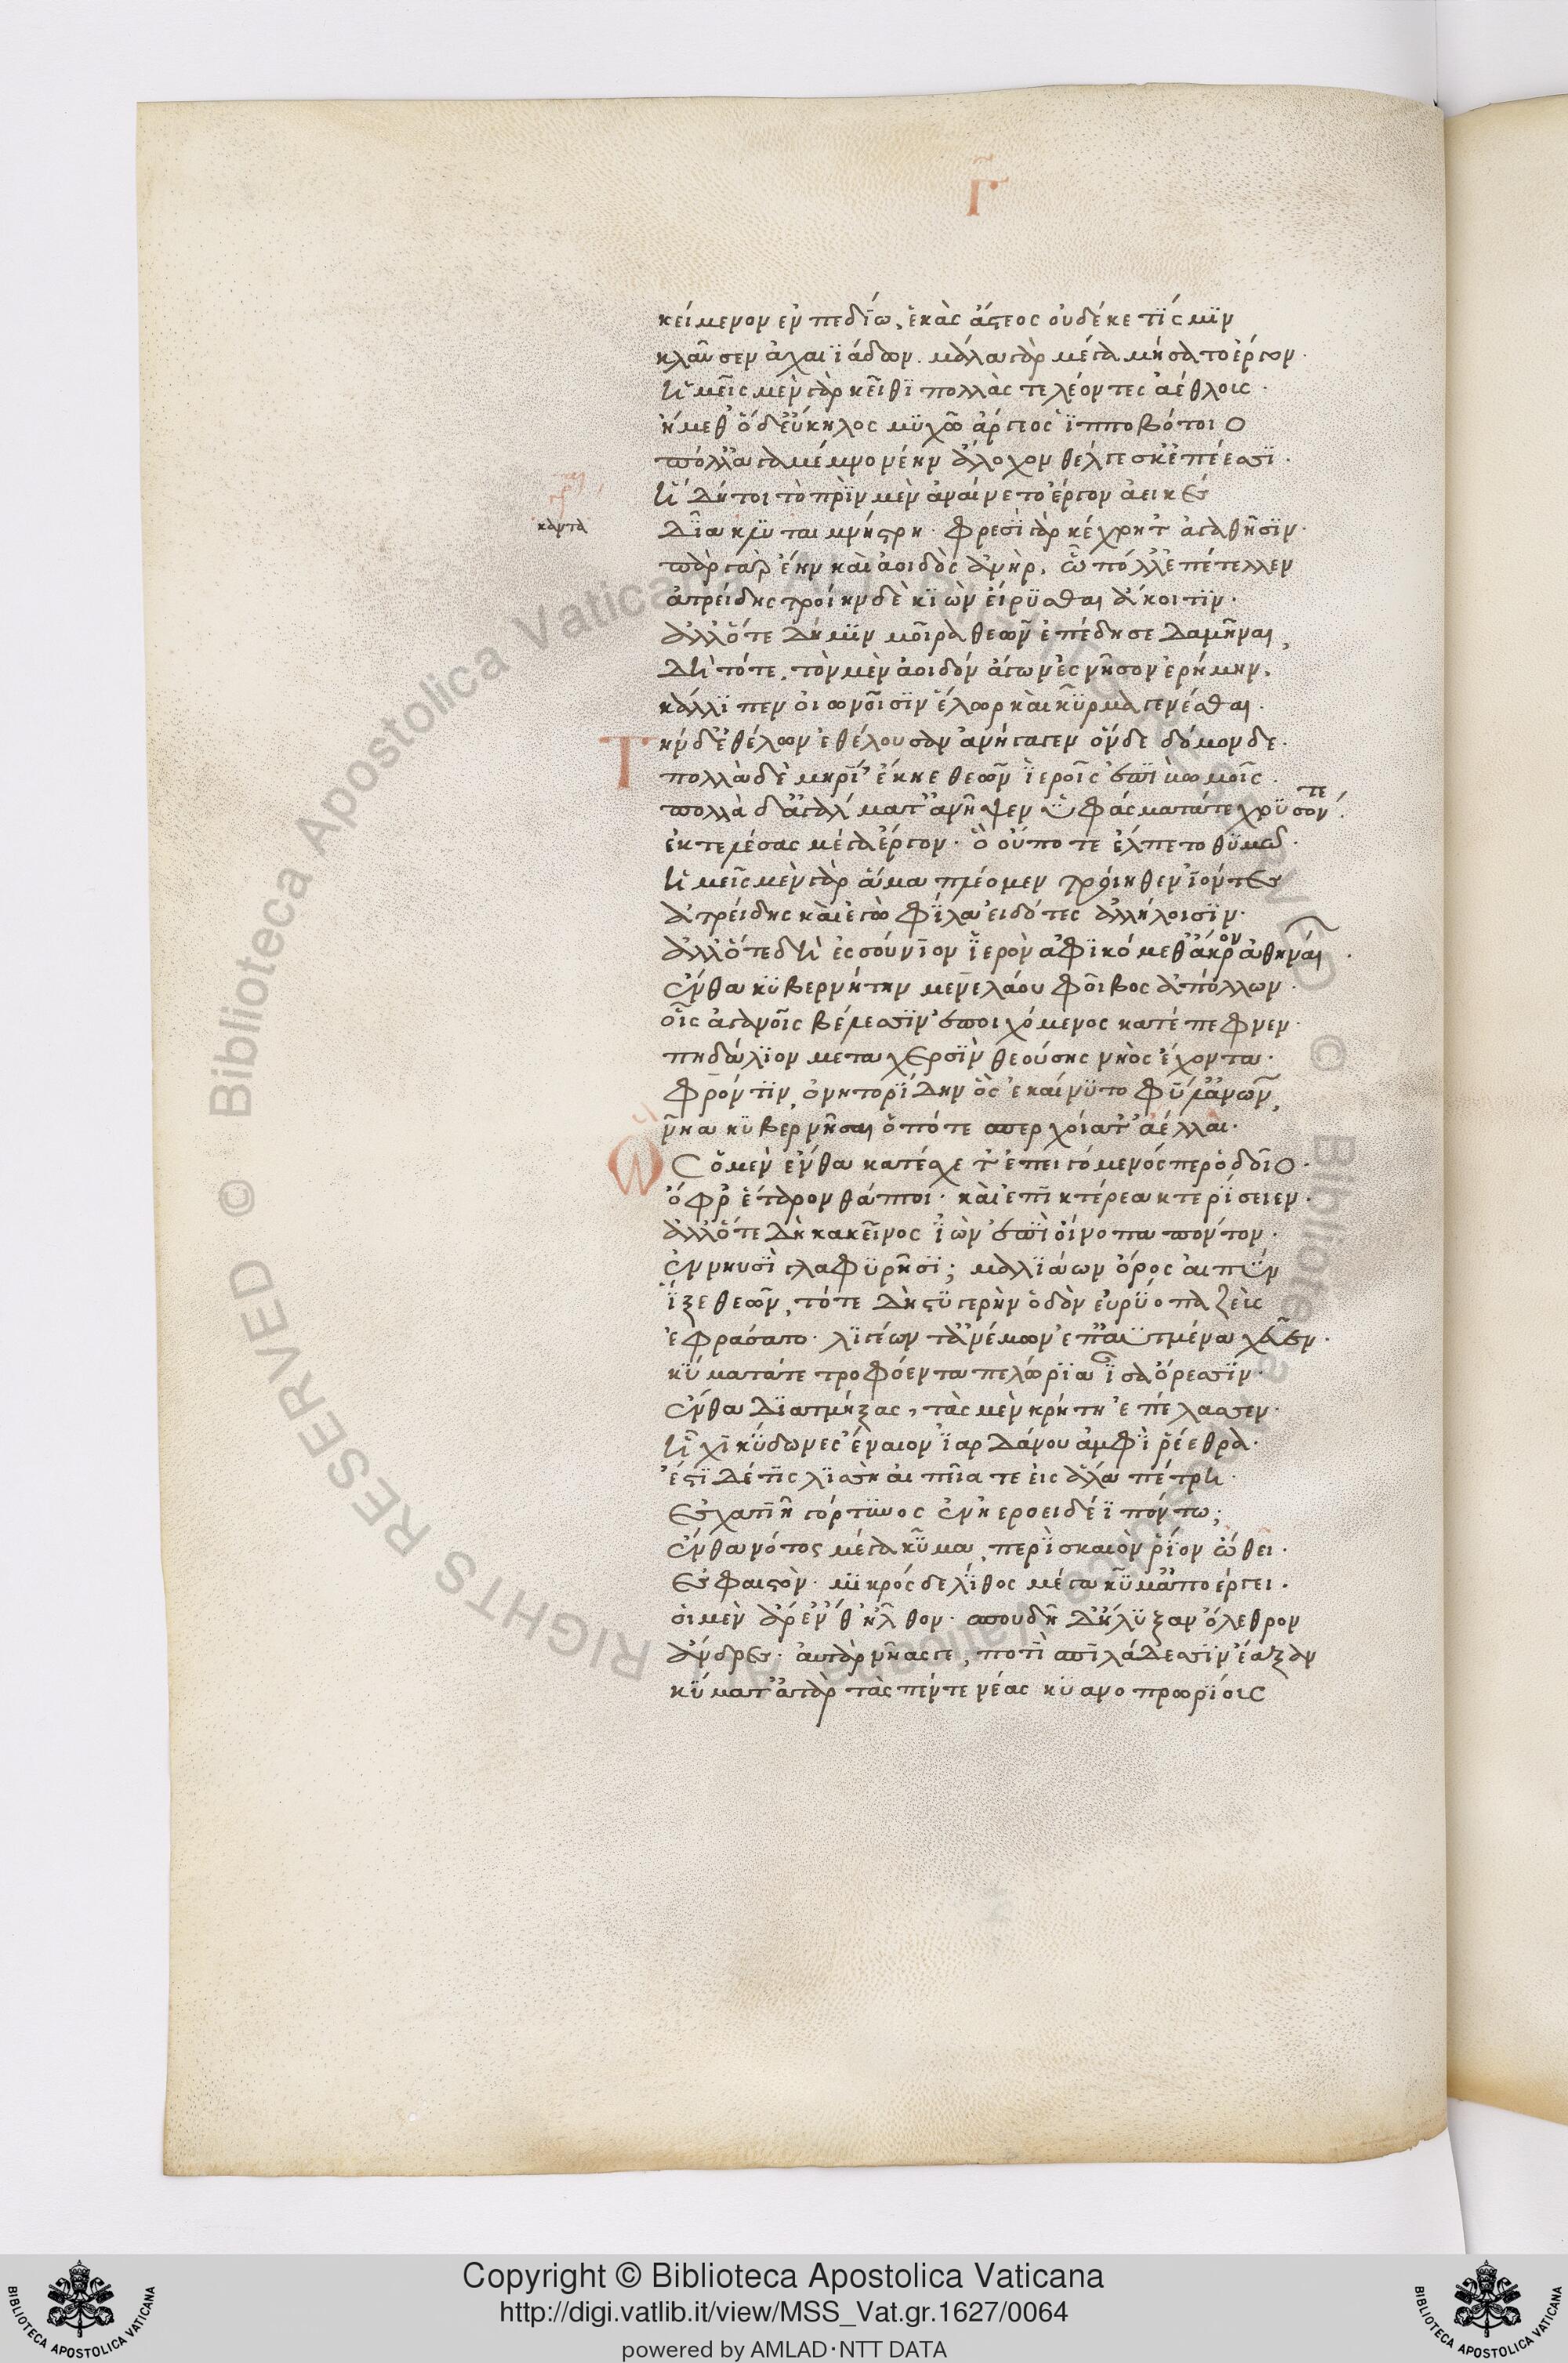 Γ
κείμενον ἐν πεδίω, ἑκὰς ἄστεος οὐδέ κε τίς μιν
κλαῦσεν ἀχαιϊάδων. μάλα γὰρ μέγα μήσατο ἔργον.
ἡμεῖς μὲν γὰρ κεῖθι πολλὰς τελέοντες ἀέθλους.
ἥμεθ' ὁ δ' εὔκηλος μυχῶ ἄργεος ἱπποβότοιο
πόλλ' ἀγαμεμνονέην ἄλοχον θέλγεσκ' ἐπέεσσι.
ἡ δή τοι τὸ πρὶν μὲν ἀναίνετο ἔργον ἀεικὲς
καντα
δῖα κλυταιμνήστρη. φρεσὶ γὰρ κέχρητ' ἀγαθῆσιν.
πὰρ γὰρ ἔην καὶ ἀοιδὸς ἀνὴρ, ᾧ πόλλ' ἐπέτελλεν
ἀτρείδης τροίην δὲ κιὼν εἴρυσθαι ἄκοιτιν.
ἀλλ' ὅτε δή μιν μοῖρα θεῶν ἐπέδησε δαμῆναι,
δὴ τότε, τὸν μὲν ἀοιδὸν ἄγων ἐς νῆσον ἐρήμην,
κάλλιπεν οἰωνοῖσιν ἕλωρ καὶ κῦρμα γενέσθαι.
Τὴν δ' ἐθέλων ἐθέλουσαν ἀνήγαγεν ὅνδε δόμονδε.
πολλὰ δὲ μηρί' ἔκηε θεῶν ἱεροῖς ἐπὶ βωμοῖς.
πολλὰ δ' ἀγάλματ' ἀνῆψεν ὑφάσματά τε χρυσόν τε.
ἐκτελέσας μέγα ἔργον. ὃ οὔποτε ἔλπετο θυμῶ.
ἡμεῖς μὲν γὰρ ἅμα πλέομεν τροίηθεν ἰόντες
ἀτρείδης καὶ ἐγὼ φίλα εἰδότες ἀλλήλοισιν.
ἀλλ' ὅτε δὴ ἐς σούνιον ἱερὸν ἀφικόμεθ' ἄκρον ἀθηνᾶν.
ἔνθα κυβερνήτην μενελάου φοῖβος ἀπόλλων.
οἷς ἀγανοῖς βέλεσσιν ἐποιχόμενος κατέπεφνεν.
πηδάλιον μετὰ χερσὶν θεούσης νηὸς ἔχοντα.
φρόντιν, ὀνητορίδην ὃς ἐκαίνυτο φῦλ' ἀνθρώπων,
νῆα κυβερνῆσαι ὁπότε σπερχοίατ' ἄελλαι.
Ὣς ὁ μὲν ἔνθα κατέσχετ' ἐπειγόμενός περ ὁδοῖο.
ὄφρ' ἕταρον θάπτοι. καὶ ἐπὶ κτέρεα κτερίσειεν.
ἀλλ' ὅτε δὴ κἀκεῖνος ἰὼν ἐπὶ οἴνοπα πόντον.
ἐν νηυσὶ γλαφυρῆσι; μαλιάων ὄρος αἰπὺν
ἷξε θέων, τότε δὴ στυγερὴν ὁδὸν εὐρύοπα ζεὺς
ἐφράσατο. λιγέων τ' ἀνέμων ἐπ' ἀϋτμένα χεῦεν.
κύματά τε τροφόεντα πελώρια ἶσα ὄρεσσιν.
ἔνθα διατμήξας, τὰς μὲν κρήτη ἐπέλασσεν.
ἧχι κύδωνες ἔναιον ἰαρδάνου ἀμφὶ ῥέεθρα.
ἔστι δέ τις λισσὴ αἰπεῖά τε εἰς ἅλα πέτρη.
ἐσχατιῆ γόρτυνος ἐν ἠεροειδέϊ πόντω;
ἔνθα νότος μέγα κῦμα, περὶ σκαιὸν ῥίον ὠθεῖ.
ἐς φαιστὸν. μικρὸς δὲ λίθος μέγα κῦμ' ἀποέργει.
οἱ μὲν ἄρ' ἔνθ' ἦλθον. σπουδῆ δ' ἤλυξαν ὄλεθρον
ἄνδρες. ἀτὰρ νῆάς γε, ποτὶ σπιλάδεσσιν ἔαξαν
κύματ' ἀτὰρ τὰς πέντε νέας κυανοπρωρίους
Copyright © Biblioteca Apostolica Vaticana
http://digi.vatlib.it/view/MSS_Vat.gr.1627/0064
powered by AMLAD·NTT DATA